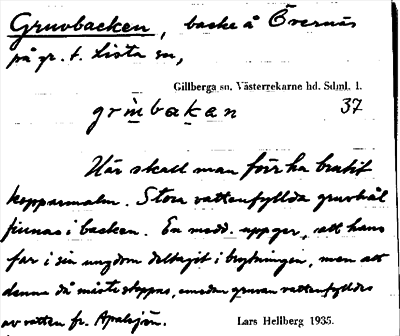 Gruvbacken, backe å Övernäs
på gr. t. Lista sn,
Gillberga sn. Västerrekarne hd. Sdml. l.
grɯ̀mbakan 37
Här skall man förr ha brutit
kopparmalm. Stora vattenfyllda gruvhål
finnas i backen. En medd. uppger, att hans
far i sin ungdom deltagit i brytningen, men att
denna då måste stoppas, emedan gruvan vattenfylldes
av vatten fr. Apalsjön.
Lars Hellberg 1935.